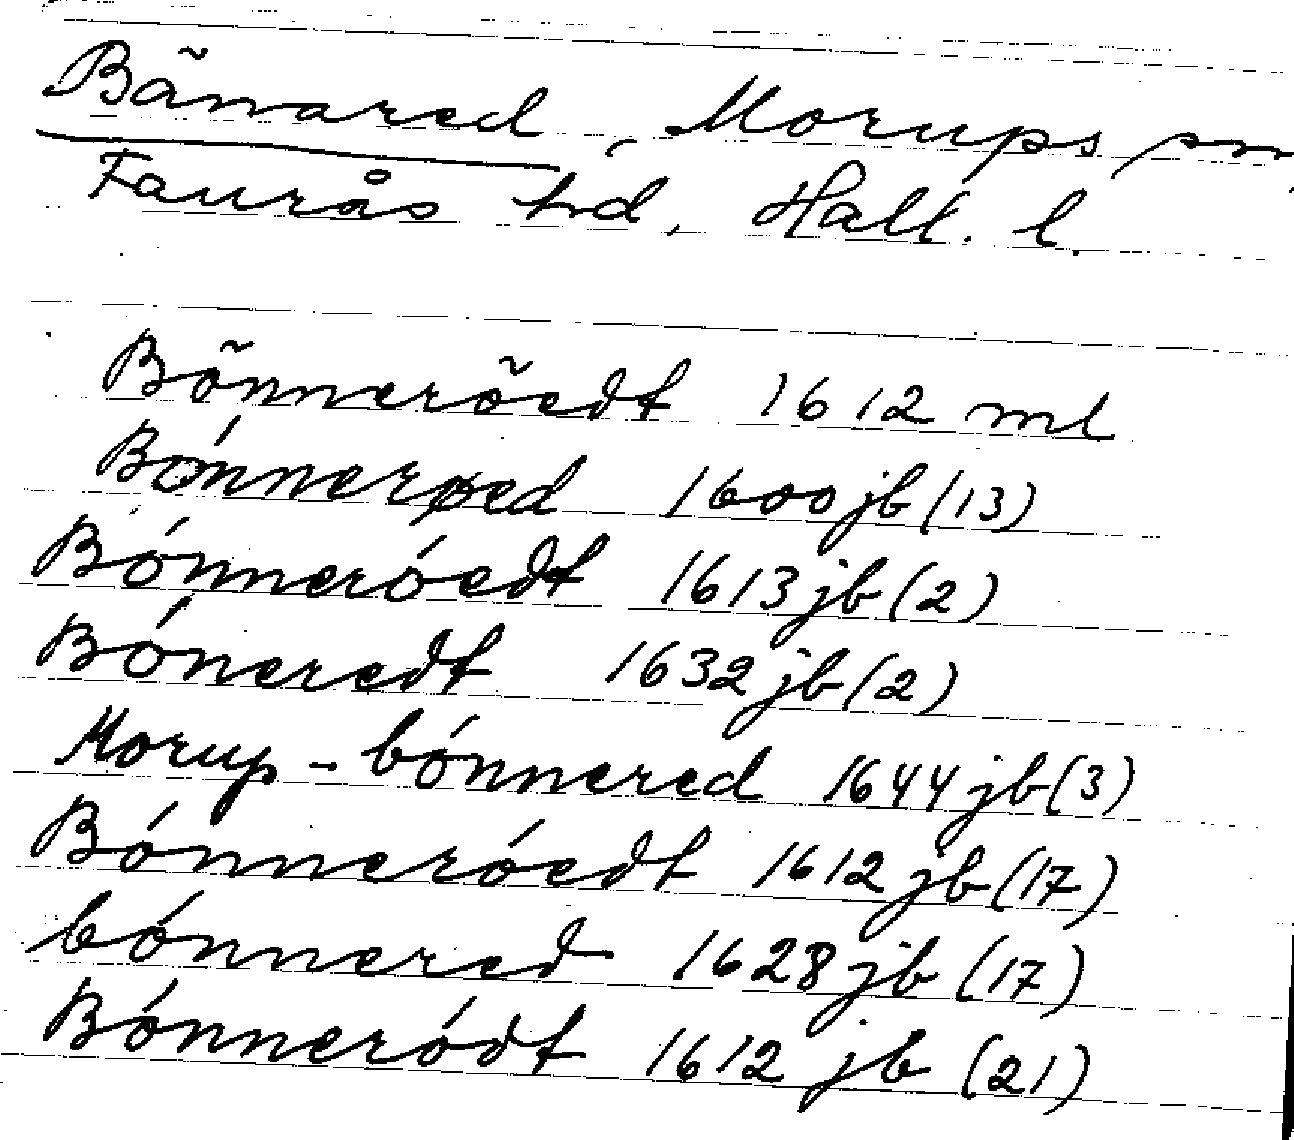 Bãnared, Morups sn
Faurås hd, Hall. l.
Bõnnerõedt 1612 ml
Bónnerøed 1600 jb (13)
Bónneróedt 1613 jb (2)
Bóneredt 1632 jb (2)
Morup - bónnered 1644 jb (3)
Bónneróedt 1612 jb (17)
bónnered 1628 jb (17)
Bónneródt 1612 jb (21)